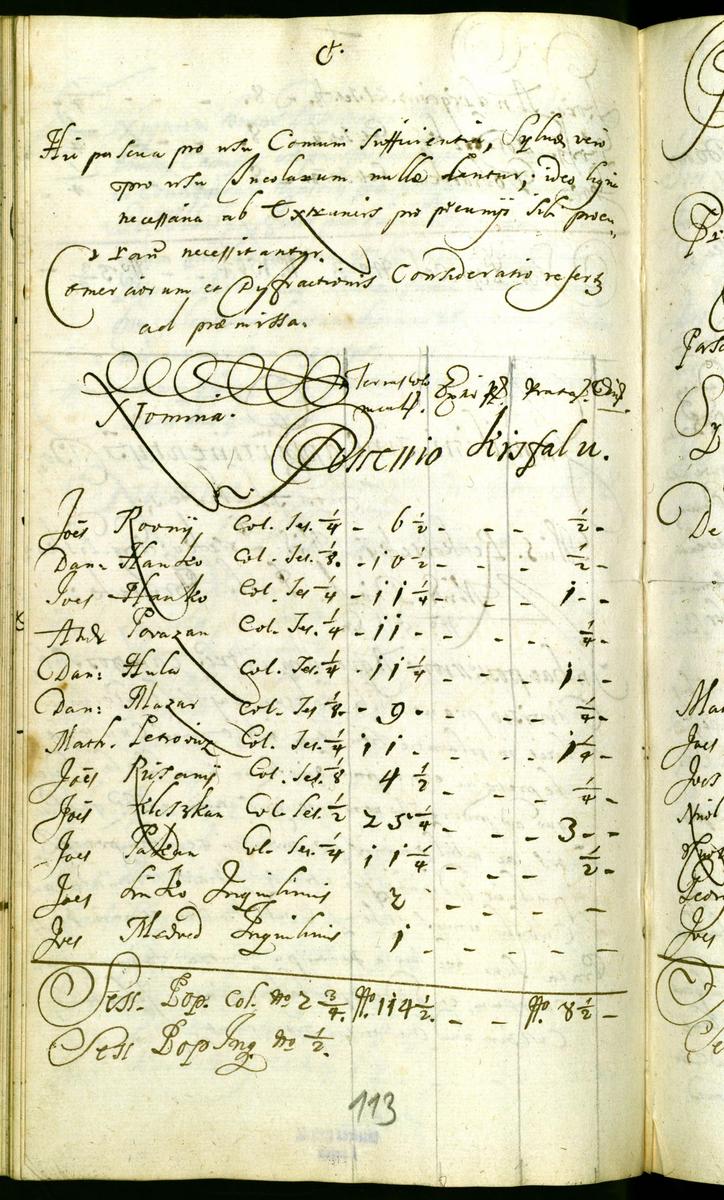 Hic pascua pro usu Comuni sufficientia, Sylvæ vero
pro usu Incolarum nullæ dantur; ideo ligna
necessaria ab Extraneis pro pecunijs sibi procu„
rare necessitantur.
Comerciorum et Distractionis Consideratio refertur
ad præmissa.
Nomina.
Possessio Krisfalu.
Joēs Rovnij Col. Ses. 1/4 - 6 1/2 - - - 1/2 -
Dan: Hanko Col. Ses. 1/8. - 10 1/2 - - - 1/2 -
Joes Hanko Col. Ses 1/4 - 11 1/4 - - - 1 - -
Andr Povazan Col. Ses. 1/4 - 11 - - - - 1/4 -
Dan: Hula Col. Ses. 1/4 - 11 1/4 - - - 1 - -
Dan: Mazar Col. Ses 1/8. - 9 - - - - 1/4 -
Math. Petrovicz Col. Ses. 1/4 11 - - - - 1 1/4 -
Joēs Col. Ses. 1/8 4 1/2 - - - 1/4 -
Joēs Col. Ses. 1/2 25 1/4 - - - 3 - -
Joes Col. Ses. 1/4 11 1/4 - - - 1/2 -
Joes Inquilinus 2 - - - -
Joes Medved Inquilinus 1 - - - - -
Sess. Pop. Col. No 2 3/4. No. 114 1/2. - - No. 8 1/2 -
Sess Pop Inq. No 1/2.
113